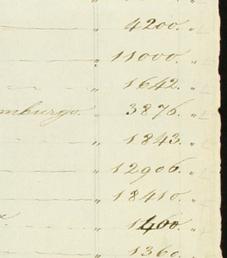 " 4200. "
" 11000. "
" 1642. "
mburgo. " 3876. "
" 1843. "
" 12906. "
" 18410. "
" 1400. "
" 1360. "